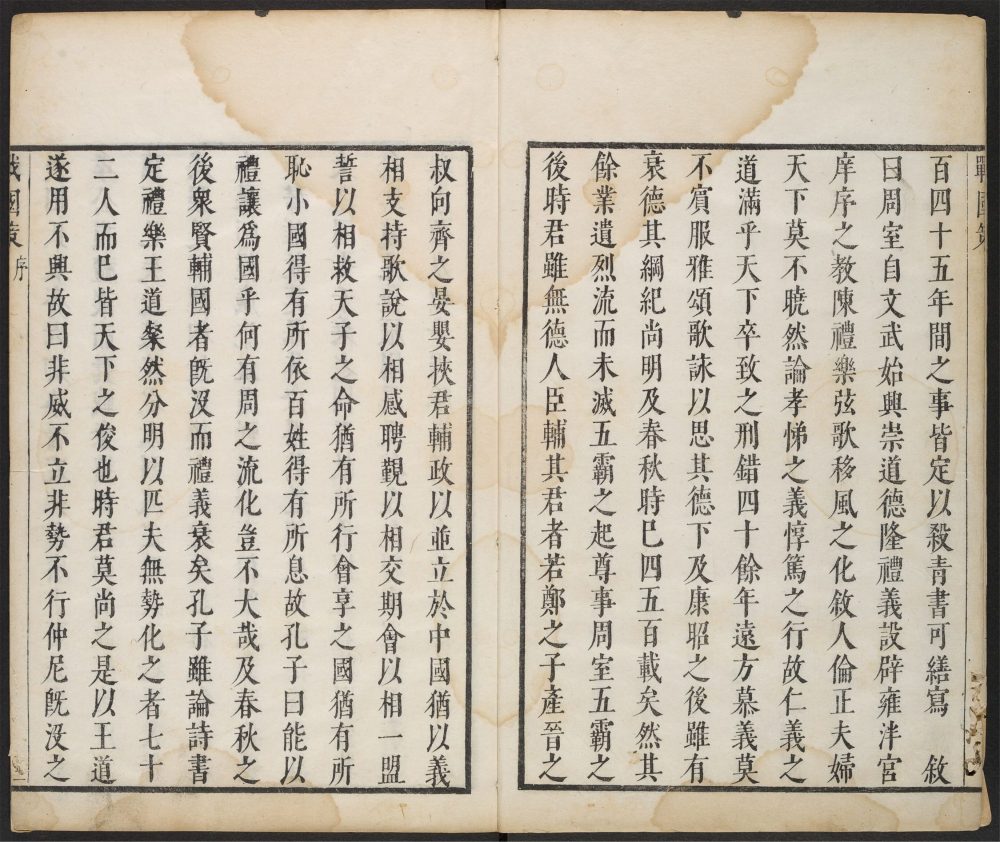 戰國策
百四十五年間之事皆定以殺青書可繕寫　敘
曰周室自文武始興崇道德隆禮義設辟雍泮宮
庠序之教陳禮樂弦歌移風之化敘人倫正夫婦
天下莫不曉然論孝悌之義惇篤之行故仁義之
道滿乎天下卒致之刑錯四十餘年遠方慕義莫
不賓服雅頌歌詠以思其德下及康昭之後雖有
衰德其綱紀尚明及春秋時巳四五百載矣然其
餘業遺烈流而未滅五霸之起尊事周室五霸之
後時君雖無德人臣輔其君者若鄭之子產晉之
叔向齊之晏嬰挾君輔政以並立於中國猶以義
相支持歌說以相感聘覲以相交期會以相一盟
誓以相救天子之命猶有所行會享之國猶有所
恥小國得有所依百姓得有所息故孔子曰能以
禮讓爲國乎何有周之流化豈不大哉及春秋之
後衆賢輔國者旣沒而禮義衰矣孔子雖論詩書
定禮樂王道粲然分明以匹夫無勢化之者七十
二人而巳皆天下之俊也時君莫尚之是以王道
遂用不興故曰非威不立非勢不行仲尼旣沒之
戰國策　序